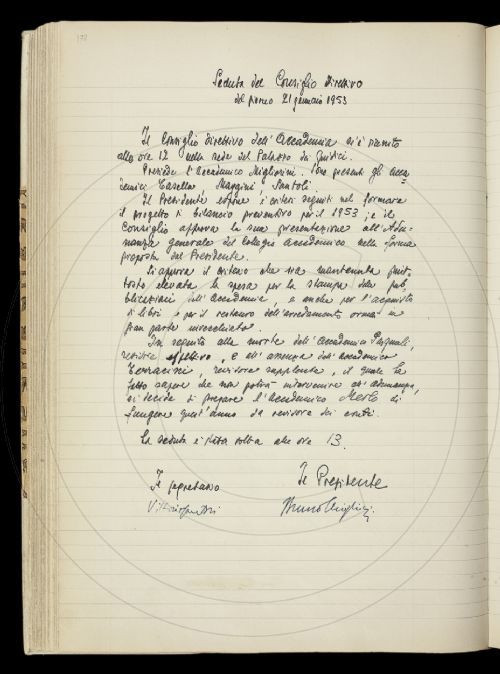 178
Seduta del Consiglio Direttivo
del giorno 21 gennaio 1953
Il Consiglio direttivo dell'Accademia si è riunito
alle ore 12 nella sede del Palazzo dei Giudici.
Presiede l'accademico Migliorini. Son presenti gli acca=
demici Casella, Maggini, Santoli.
Il Presidente espone i criteri seguiti nel formare
il progetto di bilancio preventivo per il 1953, e il
Consiglio approva la sua presentazione all'Adu-
nanza generale del Collegio accademico nella forma
proposta dal Presidente.
Si approva il criterio che sia mantenuta piut-
tosto elevata la spesa per la stampa delle pub
blicazioni dell'Accademia, e anche per l'acquisto
di libri e per il restauro dell'arredamento ormai in
gran parte invecchiato.
In seguito alla morte dell'Accademico Pasquali,
revisore effettivo, e all'assenza dell'accademico
Terracini, revisore supplente, il quale ha
fatto sapere che non potrà intervenire all'adunanza,
si decide di pregare l'Accademico Merlo di
fungere quest'anno da revisore dei conti.
La seduta è stata tolta alle ore 13.
Il segretario Il Presidente
Vittorio Santoli Bruno Migliorini